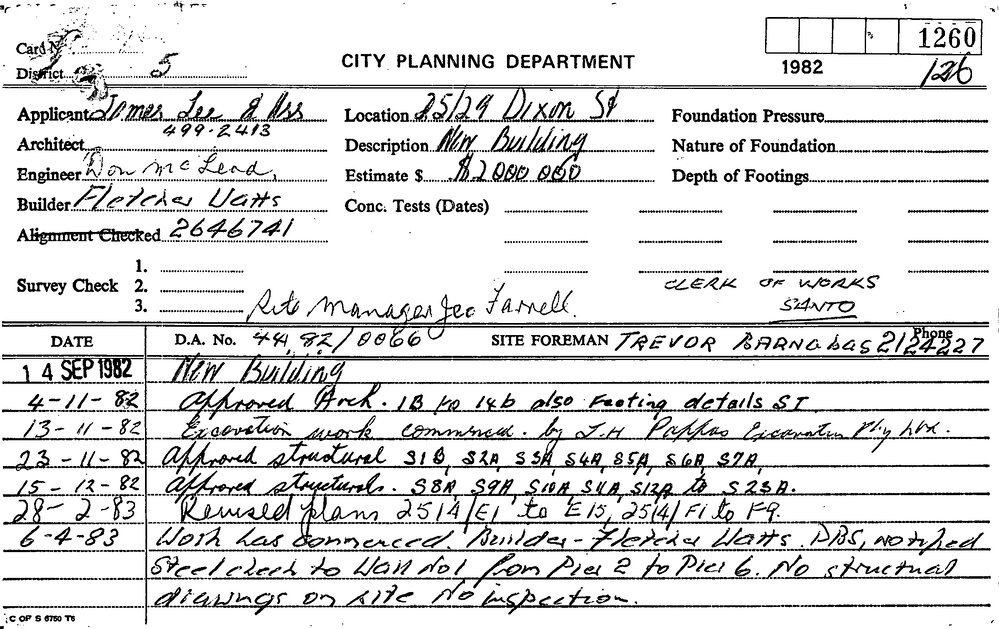 1260
Card No
CITY PLANNING DEPARTMENT
1982
126
District 5
Applicant James Lee & Ass Location 25/29 Dixon St Foundation Pressure
499-2413
Architect Description New Building Nature of Foundation
Engineer Don McLead, Estimate $ $2000 000 Depth of Footings
Builder Fletcher Watts Conc. Tests (Dates)
Alignment Checked 2646741
1.
Survey Check 2.
CLERK OF WORKS
3. Site Manager Farnell. SANTO
DATE D.A. No. 44 82/0066 SITE FOREMAN TREVOR BARNABAS Phone 2124227
14 SEP 1982 New Building
4-11-82 Approved Arch. 1B to 14b also Footing details S1
13-11-82 Excavation work commenced. by J.H Pappas Excavation Pty Ltd.
23-11-82 Approved structural S1B, S2A, S3A, S4A, S5A, S6A, S7A,
15-12-82 Approved structurals. S8A, S9A, S10A, S11A, S12A to S23A.
28-2-83 Revised plans 2514/E1 to E15, 2514/F1 to F9.
6-4-83 Work has commenced. Builder - Fletcher Watts. DBS, notified
Steel check to Wall No1 from Pier 2 to Pier 6. No structural
drawings on site No inspection.
C OF S 6750 T6